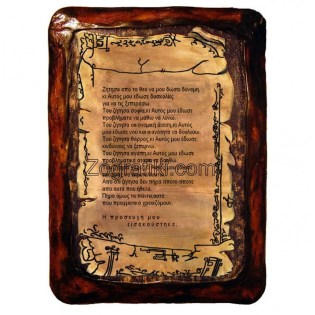 Ζήτησα από το θεό να μου δώσει δύναμη,
κι Αυτός μου έδωσε δυσκολίες
για να τις ξεπεράσω.
Του ζήτησα σοφία κι Αυτός μου έδωσε
προβλήματα να μάθω να λύνω.
Του ζήτησα οικονομική άνεση κι Αυτός μου
έδωσε νου και ικανότητα να δουλεύω.
Του ζήτησα θάρρος κι Αυτός μου έδωσε
κινδύνους να ξεπερνώ.
Του ζήτησα αγάπη κι Αυτός μου έδωσε
προβληματικά άτομα να βοηθώ.
Zografiki.com
Από ότι ζήτησα δεν πήρα τίποτε
από αυτά που ήθελα.
Πήρα όμως τα πάντα αυτά
που πραγματικά χρειαζόμουν.
Η προσευχή μου
εισακούστηκε.